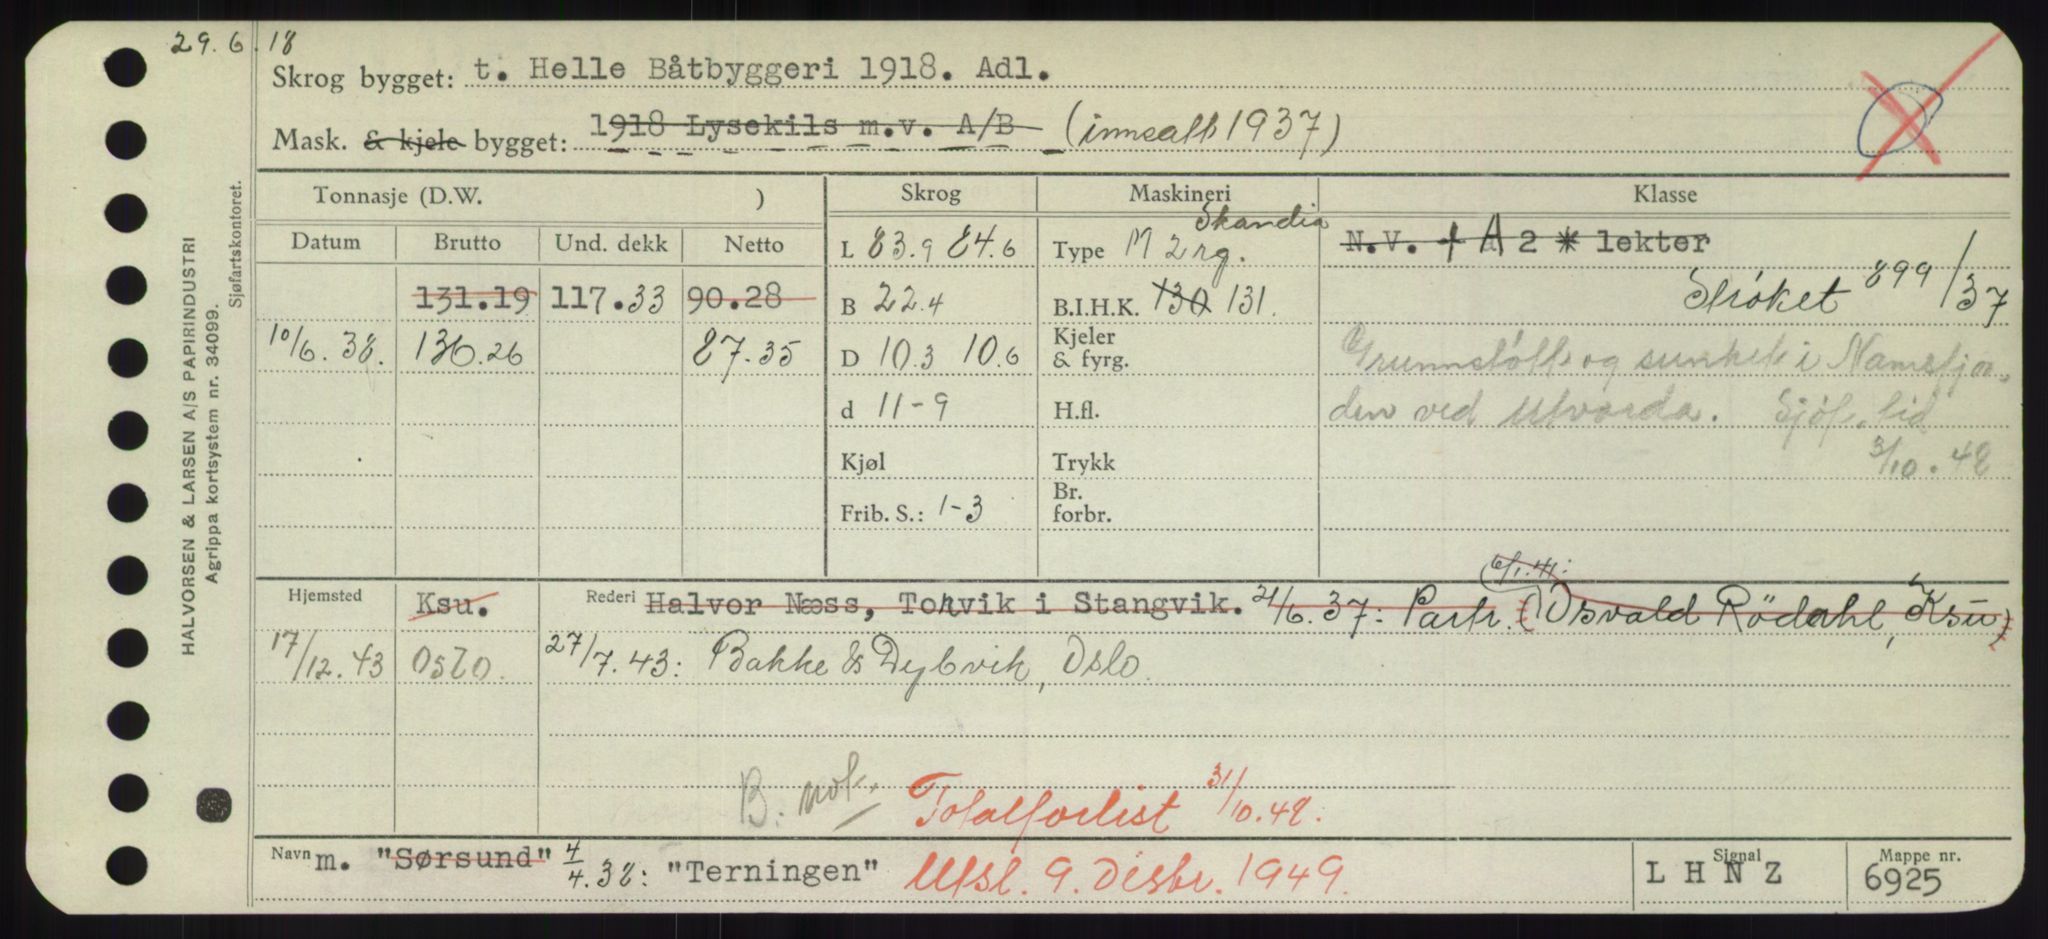 29.6.18
Skrog bygget: t. Helle Båtbyggeri 1918. Adl.
Mask. & kjele bygget: 1918 Lysekils m.v. A/B (innsatt 1937)
HALVORSEN & LARSEN A/S PAPIRINDUSTRI
Agrippa kortsystem nr. 34099.
Sjøfartskontoret.
Tonnasje (D.W. ) Skrog Maskineri Klasse
Datum Brutto Und. dekk Netto L 83.9 84.6 Type M 2 rg. Skandia N.V. + A 2 * lekter
131.19 117.33 90.28 B 22.4 B.I.H.K. 130 131. Strøket 899/37
10/6.38. 130.26 87.35 D 10.3 10.6 Kjeler & fyrg. Grunnstøtt og sunket i Namsfjor-
d 11-9 H.fl. den ved Utvorda. Sjöf. tid
Kjøl Trykk 3/10.48
Frib. S.: 1-3 Br. forbr.
6/1.41:
Hjemsted Ksu. Rederi Halvor Næss, Tornvik i Stangvik. 21/6.37: Partr. (Osvald Rödahl, Ksu)
17/12.43 Oslo. 27/7.43: Bakke & Dybvik, Oslo.
B. not. Totalforlist 31/10.48.
Navn m. "Sørsund" 4/4.38: "Terningen" Utsl. 9. Desbr. 1949. Signal L H N Z Mappe nr. 6925